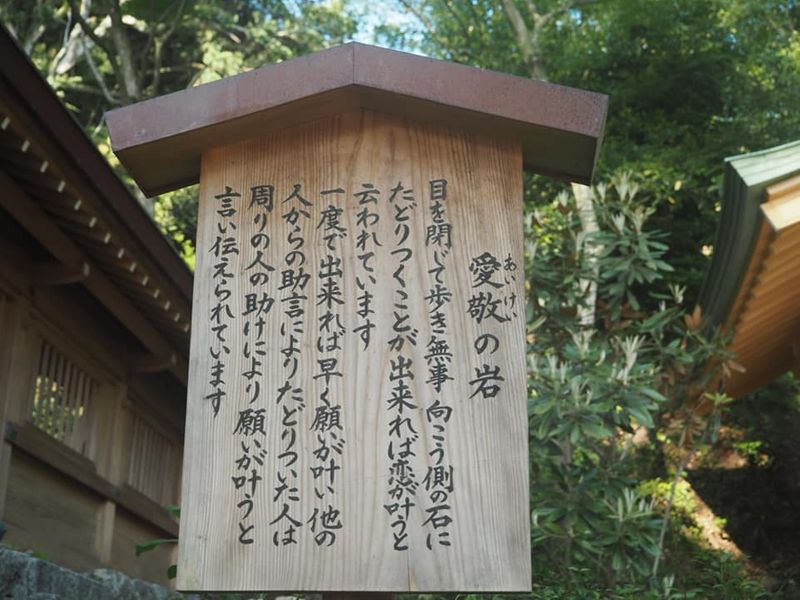 愛敬の岩
あいけい
目を閉じて歩き無事 向こう側の石に
たどりつくことが出来れば恋が叶うと
云われています
一度で出来れば早く願いが叶い他の
人からの助言によりたどりついた人は
周りの人の助けにより願いが叶うと
言い伝えられています